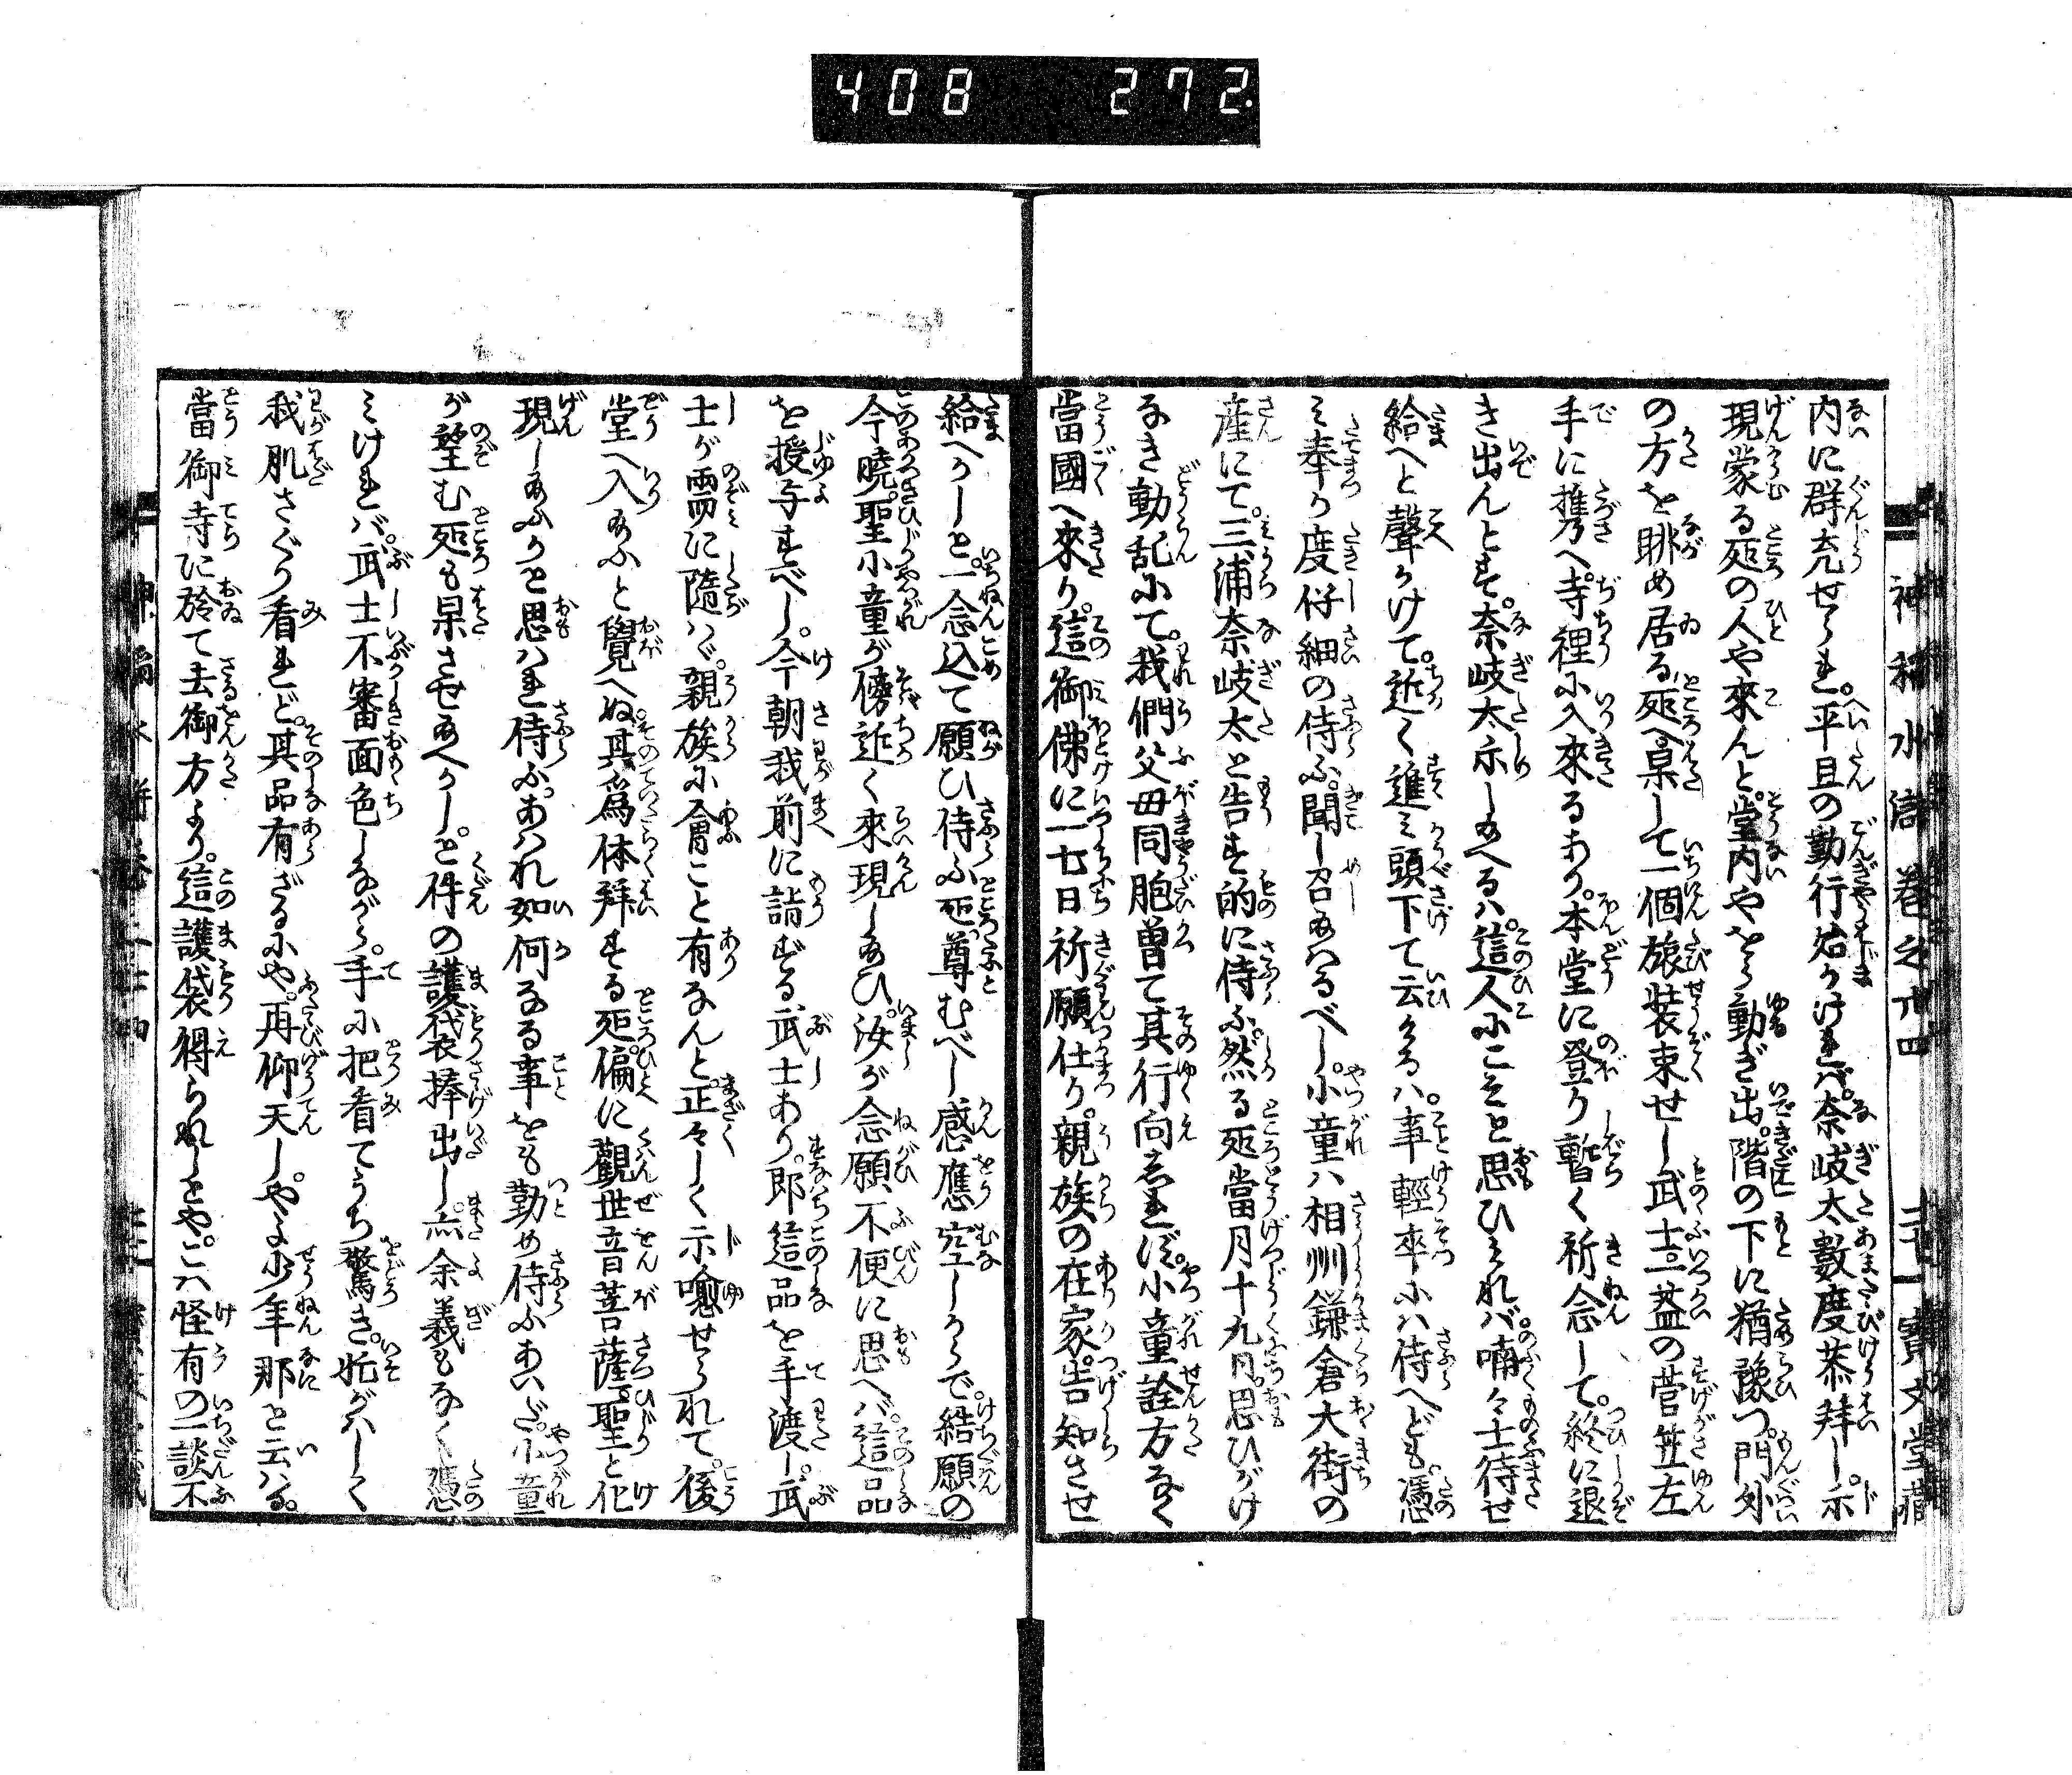 408 272
神稲水滸 巻之廿四 寶文堂藏
内に群充せられ。平旦の勤行始りければ。奈岐太數度恭拜し。示
現蒙る処の人や來んと。堂内やをら動ぎ出。階の下に猶豫つ。門外
の方を眺め居る処へ。果して一個旅装束せし武士。一蓋の菅笠左
手に携へ。寺裡に入來るあり。本堂に登り暫く祈念して。終に退
き出んとす。奈岐太示し玉へるハ。這人にこそと思ひければ。喃々士待せ
給へと聲かけて。近く進ミ頭下て云けるハ。事輕卒にハ侍へども。憑
ミ奉り度仔細の侍ふ。聞し召玉はるべし。小童ハ相州鎌倉大街の
産にて。三浦奈岐太と告す的に侍ふ。然る処當月十九日。思ひがけ
なき動乱にて。我們父母同胞曽て其行向しれず。小童詮方なく
當國へ來り。這御佛に一七日祈願仕り。親族の在家。告知させ
給へかしと。一念込て願ひ侍ふ処。尊むべし感應空しからで。結願の
今曉。聖小童が傍近く來現し玉ひ。汝が念願不便に思へバ。這品
を授与すべし。今朝我前に詣ずる武士あり。即這品を手渡し。武
士が需に隨ハゞ。親族に會こと有なんと。正々しく示喩せられて。後
堂へ入玉ふと覺へぬ。其為体拜する処。偏に觀世音菩薩。聖と化
現し玉ふかと思ハれ侍ふ。あハれ如何なる事をも勤め侍ふあいだ。小童
が望む処も果させ玉へかしと。件の護袋捧出し。亦余義もなく憑
ミければ。武士不審面色しながら。手に把看てうち驚き。忙がハしく
我肌さぐり看れど。其品有ざるにや。再仰天し。やよ少年那と云ハる。
當御寺に於て去御方より。這護袋得られしとや。こハ怪有の一談不